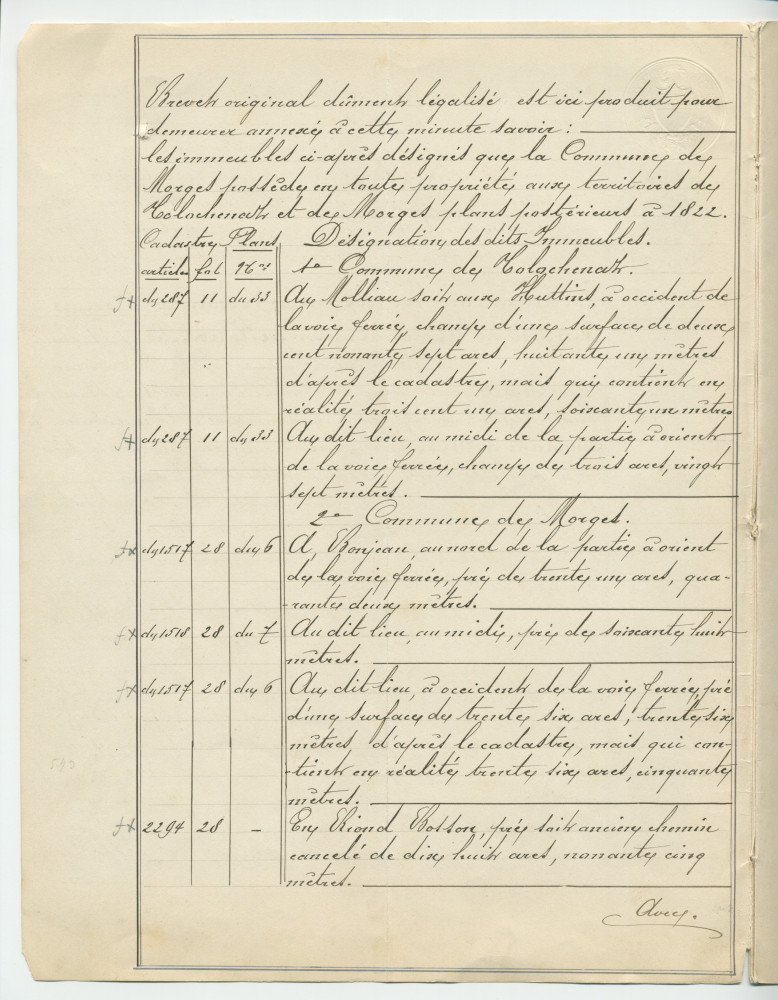 Brevet original dûment légalisé est ici produit pour
demeurer annexé à cette minute savoir :
les immeubles ci-après désignés que la Commune de
Morges possède en toute propriété aux territoires de
Tolochenaz et de Morges plans postérieurs à 1822.
Cadastre Plans Désignation des dits Immeubles.
articles fol Nos 1o Commune de Tolochenaz.
du 287 11 du 33 Au Molliau soit aux Huttins, à occident de
la voie ferrée, champ d'une surface de deux
cent nonante sept ares, huitante un mètres
d'après le cadastre, mais qui contient en
réalité trois cent un ares, soixante un mètres
du 287 11 du 33 Au dit lieu, au midi de la partie à orient
de la voie ferrée, champ de trois ares, vingt
sept mètres.
2o Commune de Morges.
du 1517 28 du 6 A Bonjean, au nord de la partie à orient
de la voie ferrée, pré de trente un ares, qua-
-rante deux mètres.
du 1518 28 du 7 Au dit lieu, au midi, pré de soixante huit
mètres.
du 1517 28 du 6 Au dit lieu, à occident de la voie ferrée, pré
d'une surface de trente six ares, trente six
mètres, d'après le cadastre, mais qui con-
-tient en réalité trente six ares, cinquante
mètres.
2294 28 – En Riond Bosson, pré soit ancien chemin
cancelé de dix huit ares, nonante cinq
mètres.
Avec.